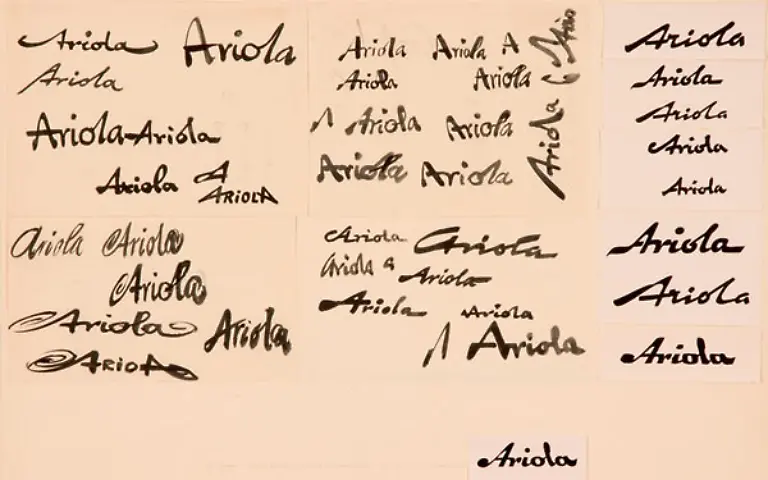 Ariola Ariola
Ariola
Ariola-Ariola
Ariola A
ARIOLA
Ariola Ariola A
Ariola Ariola
Ariola Ariola
Ariola Ariola
Ariola
Ariola
Ariola
Ariola
Ariola
Ariola
Ariola Ariola
Ariola
Ariola Ariola
ARIOLA
Ariola Ariola
Ariola a Ariola
Ariola Ariola
Ariola
Ariola
Ariola
Ariola
Ariola